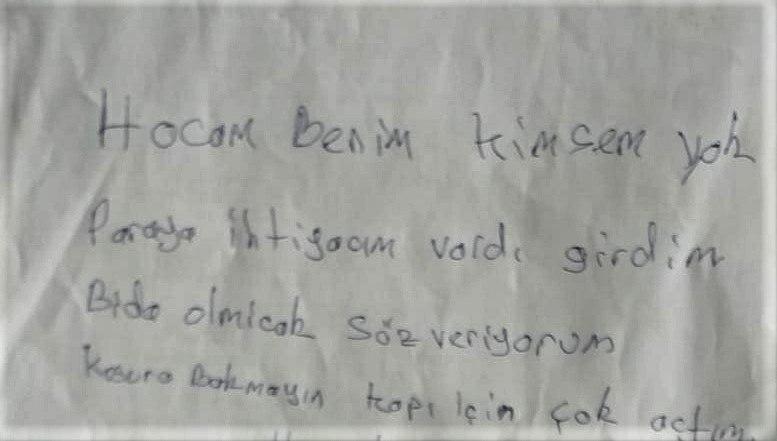 Hocam Benim kimsem yok
Paraya ihtiyacım vardı girdim
Bida olmicak söz veriyorum
Kusura Bakmayın kapı için çok actım